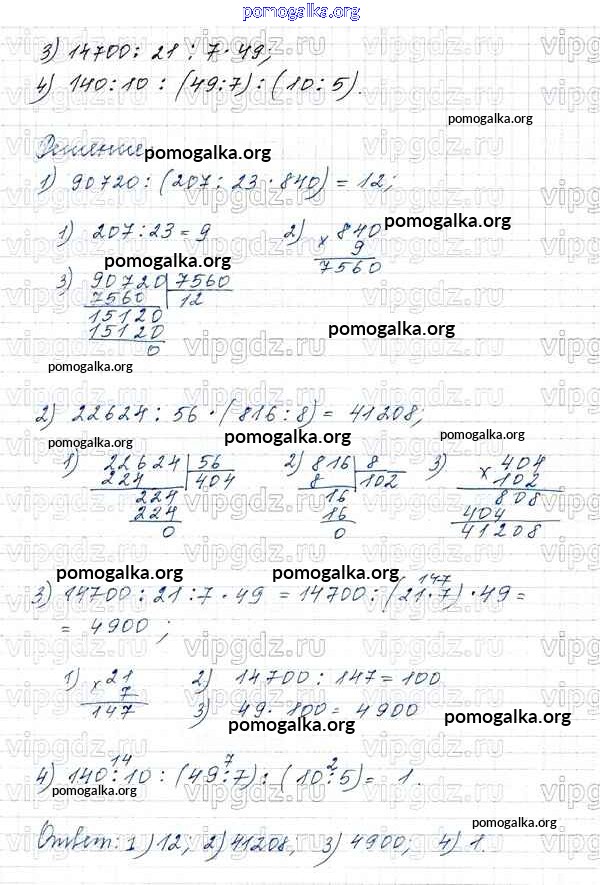 pomogalka.org
3) 14700 : 21 : 7 · 49;
4) 140 : 10 : (49 : 7) : (10 : 5).
pomogalka.org
Решение
pomogalka.org
1) 90720 : (207 : 23 · 840) = 12;
1) 207 : 23 = 9 2) × 840
pomogalka.org
9
7560
pomogalka.org
3) 90720 | 7560
7560 12
15120
15120
0
pomogalka.org
pomogalka.org
2) 22624 : 56 · (816 : 8) = 41208;
pomogalka.org pomogalka.org
1) 22624 | 56 2) 816 | 8 3) × 404
224 404 8 102 102
224 16 808
224 16 404
0 0 41208
pomogalka.org pomogalka.org
147
3) 14700 : 21 : 7 · 49 = 14700 : (21 · 7) · 49 =
= 4900;
1) × 21 2) 14700 : 147 = 100
7 3) 49 · 100 = 4900
147
pomogalka.org pomogalka.org
14 7 2
4) 140 : 10 : (49 : 7) : (10 : 5) = 1.
pomogalka.org
pomogalka.org
Ответ: 1) 12; 2) 41208; 3) 4900; 4) 1.
vipgdz.ru vipgdz.ru vipgdz.ru